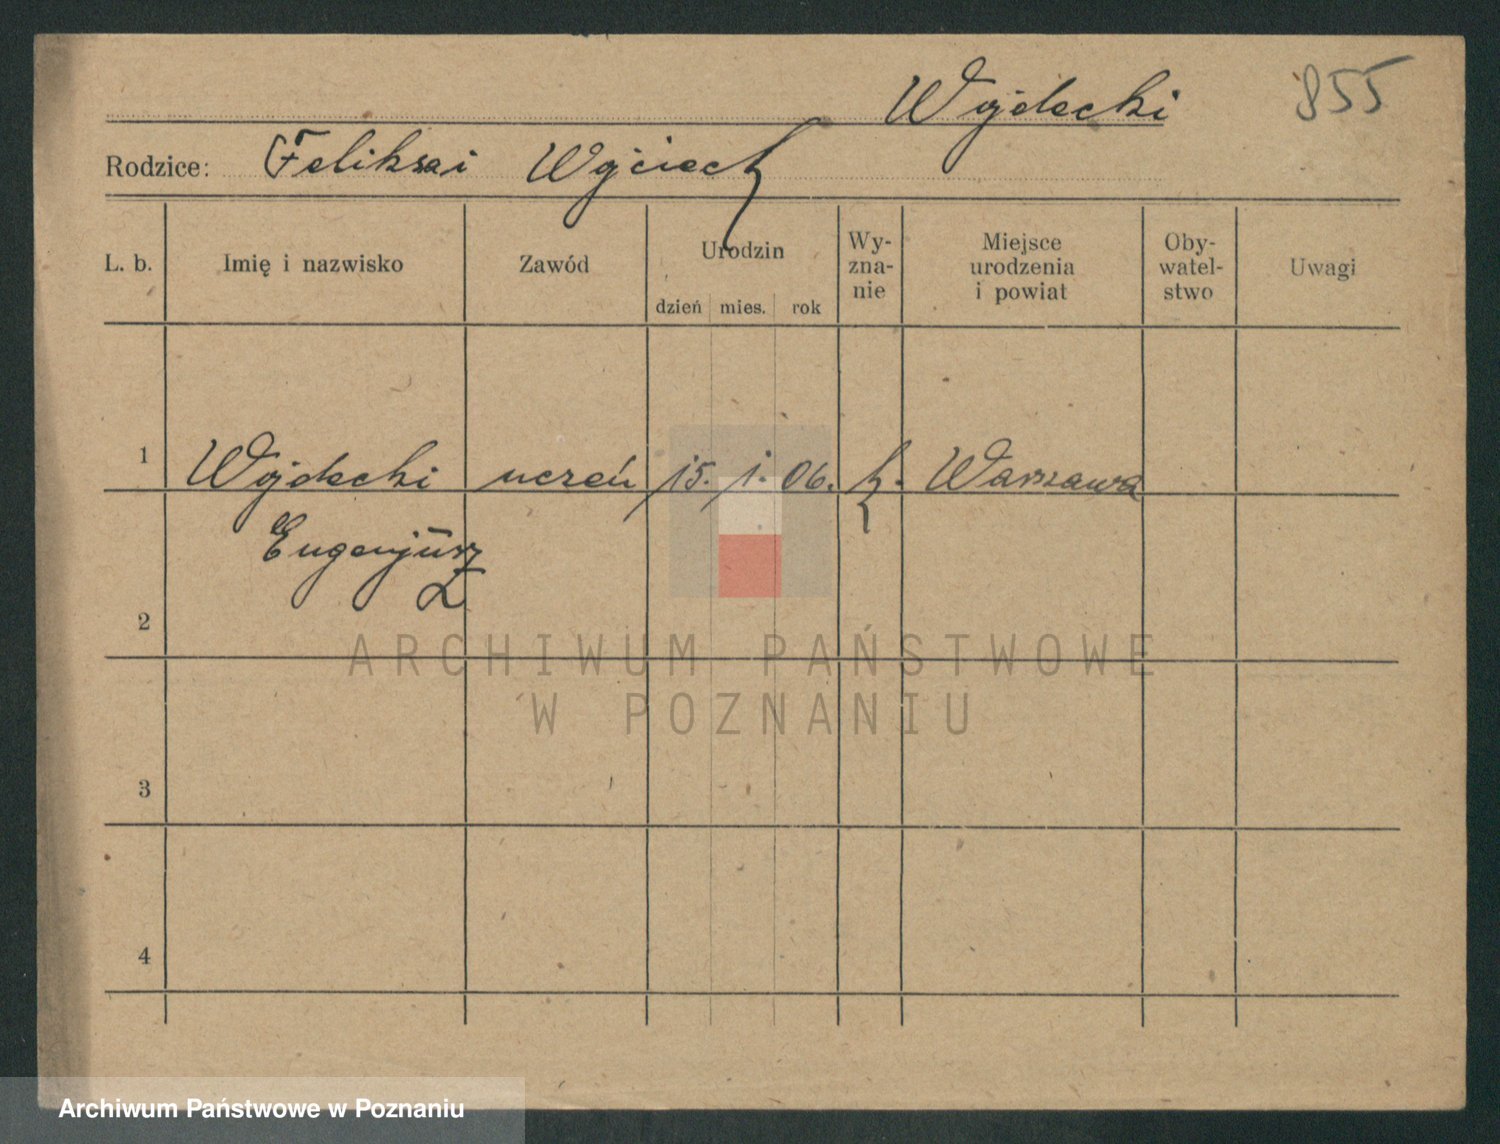 Wojdecki 855
Rodzice: Feliks i Wojciech
L. b. Imię i nazwisko Zawód Urodzin dzień mies. rok Wy-zna-nie Miejsce urodzenia i powiat Oby-watel-stwo Uwagi
1 Wojdecki uczeń 15. 1. 06. k. Warszawa
Eugenjusz
2
ARCHIWUM PAŃSTWOWE
W POZNANIU
3
4
Archiwum Państwowe w Poznaniu